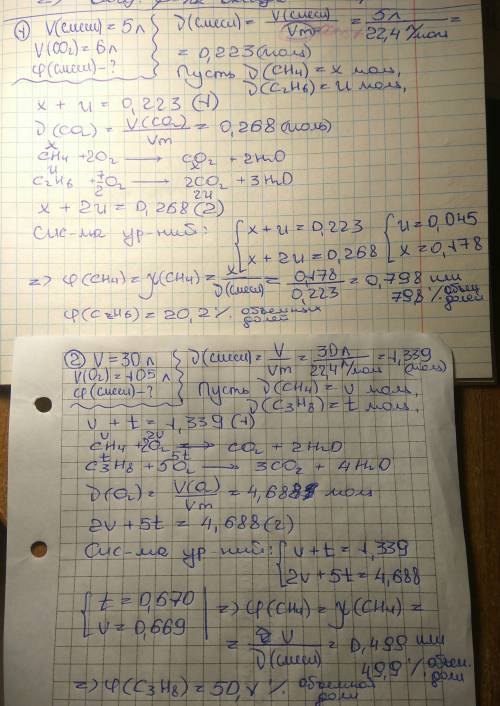 ① V(смеси) = 5 л
V(CO2) = 6 л
φ(смеси) - ?
ν(смеси) = V(смеси)/Vm = 5 л/22,4 л/моль =
= 0,223 (моль)
Пусть ν(CH4) = x моль,
ν(C2H6) = u моль,
x + u = 0,223 (1)
ν(CO2) = V(CO2)/Vm = 0,268 (моль)
x x
CH4 + 2O2 → CO2 + 2H2O
u 2u
C2H6 + 7/2 O2 → 2CO2 + 3H2O
x + 2u = 0,268 (2)
Сис-ма ур-ний: { x + u = 0,223 { u = 0,045
x + 2u = 0,268 x = 0,178
=> φ(CH4) = χ(CH4) = x/ν(смеси) = 0,178/0,223 = 0,798 или
79,8 % объем. долей
φ(C2H6) = 20,2 % объемных долей
② V = 30 л
V(O2) = 105 л
φ(смеси) - ?
ν(смеси) = V/Vm = 30 л/22,4 л/моль = 1,339 (моль)
Пусть ν(CH4) = v моль,
ν(C3H8) = t моль,
v + t = 1,339 (1)
v 2v
CH4 + 2O2 → CO2 + 2H2O
t 5t
C3H8 + 5O2 → 3CO2 + 4H2O
ν(O2) = V(O2)/Vm = 4,688 моль
2v + 5t = 4,688 (2)
Сис-ма ур-ний: { v + t = 1,339
2v + 5t = 4,688
{ t = 0,670
v = 0,669
=> φ(CH4) = χ(CH4) =
= v/ν(смеси) = 0,499 или
49,9 % объем. доли
=> φ(C3H8) = 50,1 % объемной доли